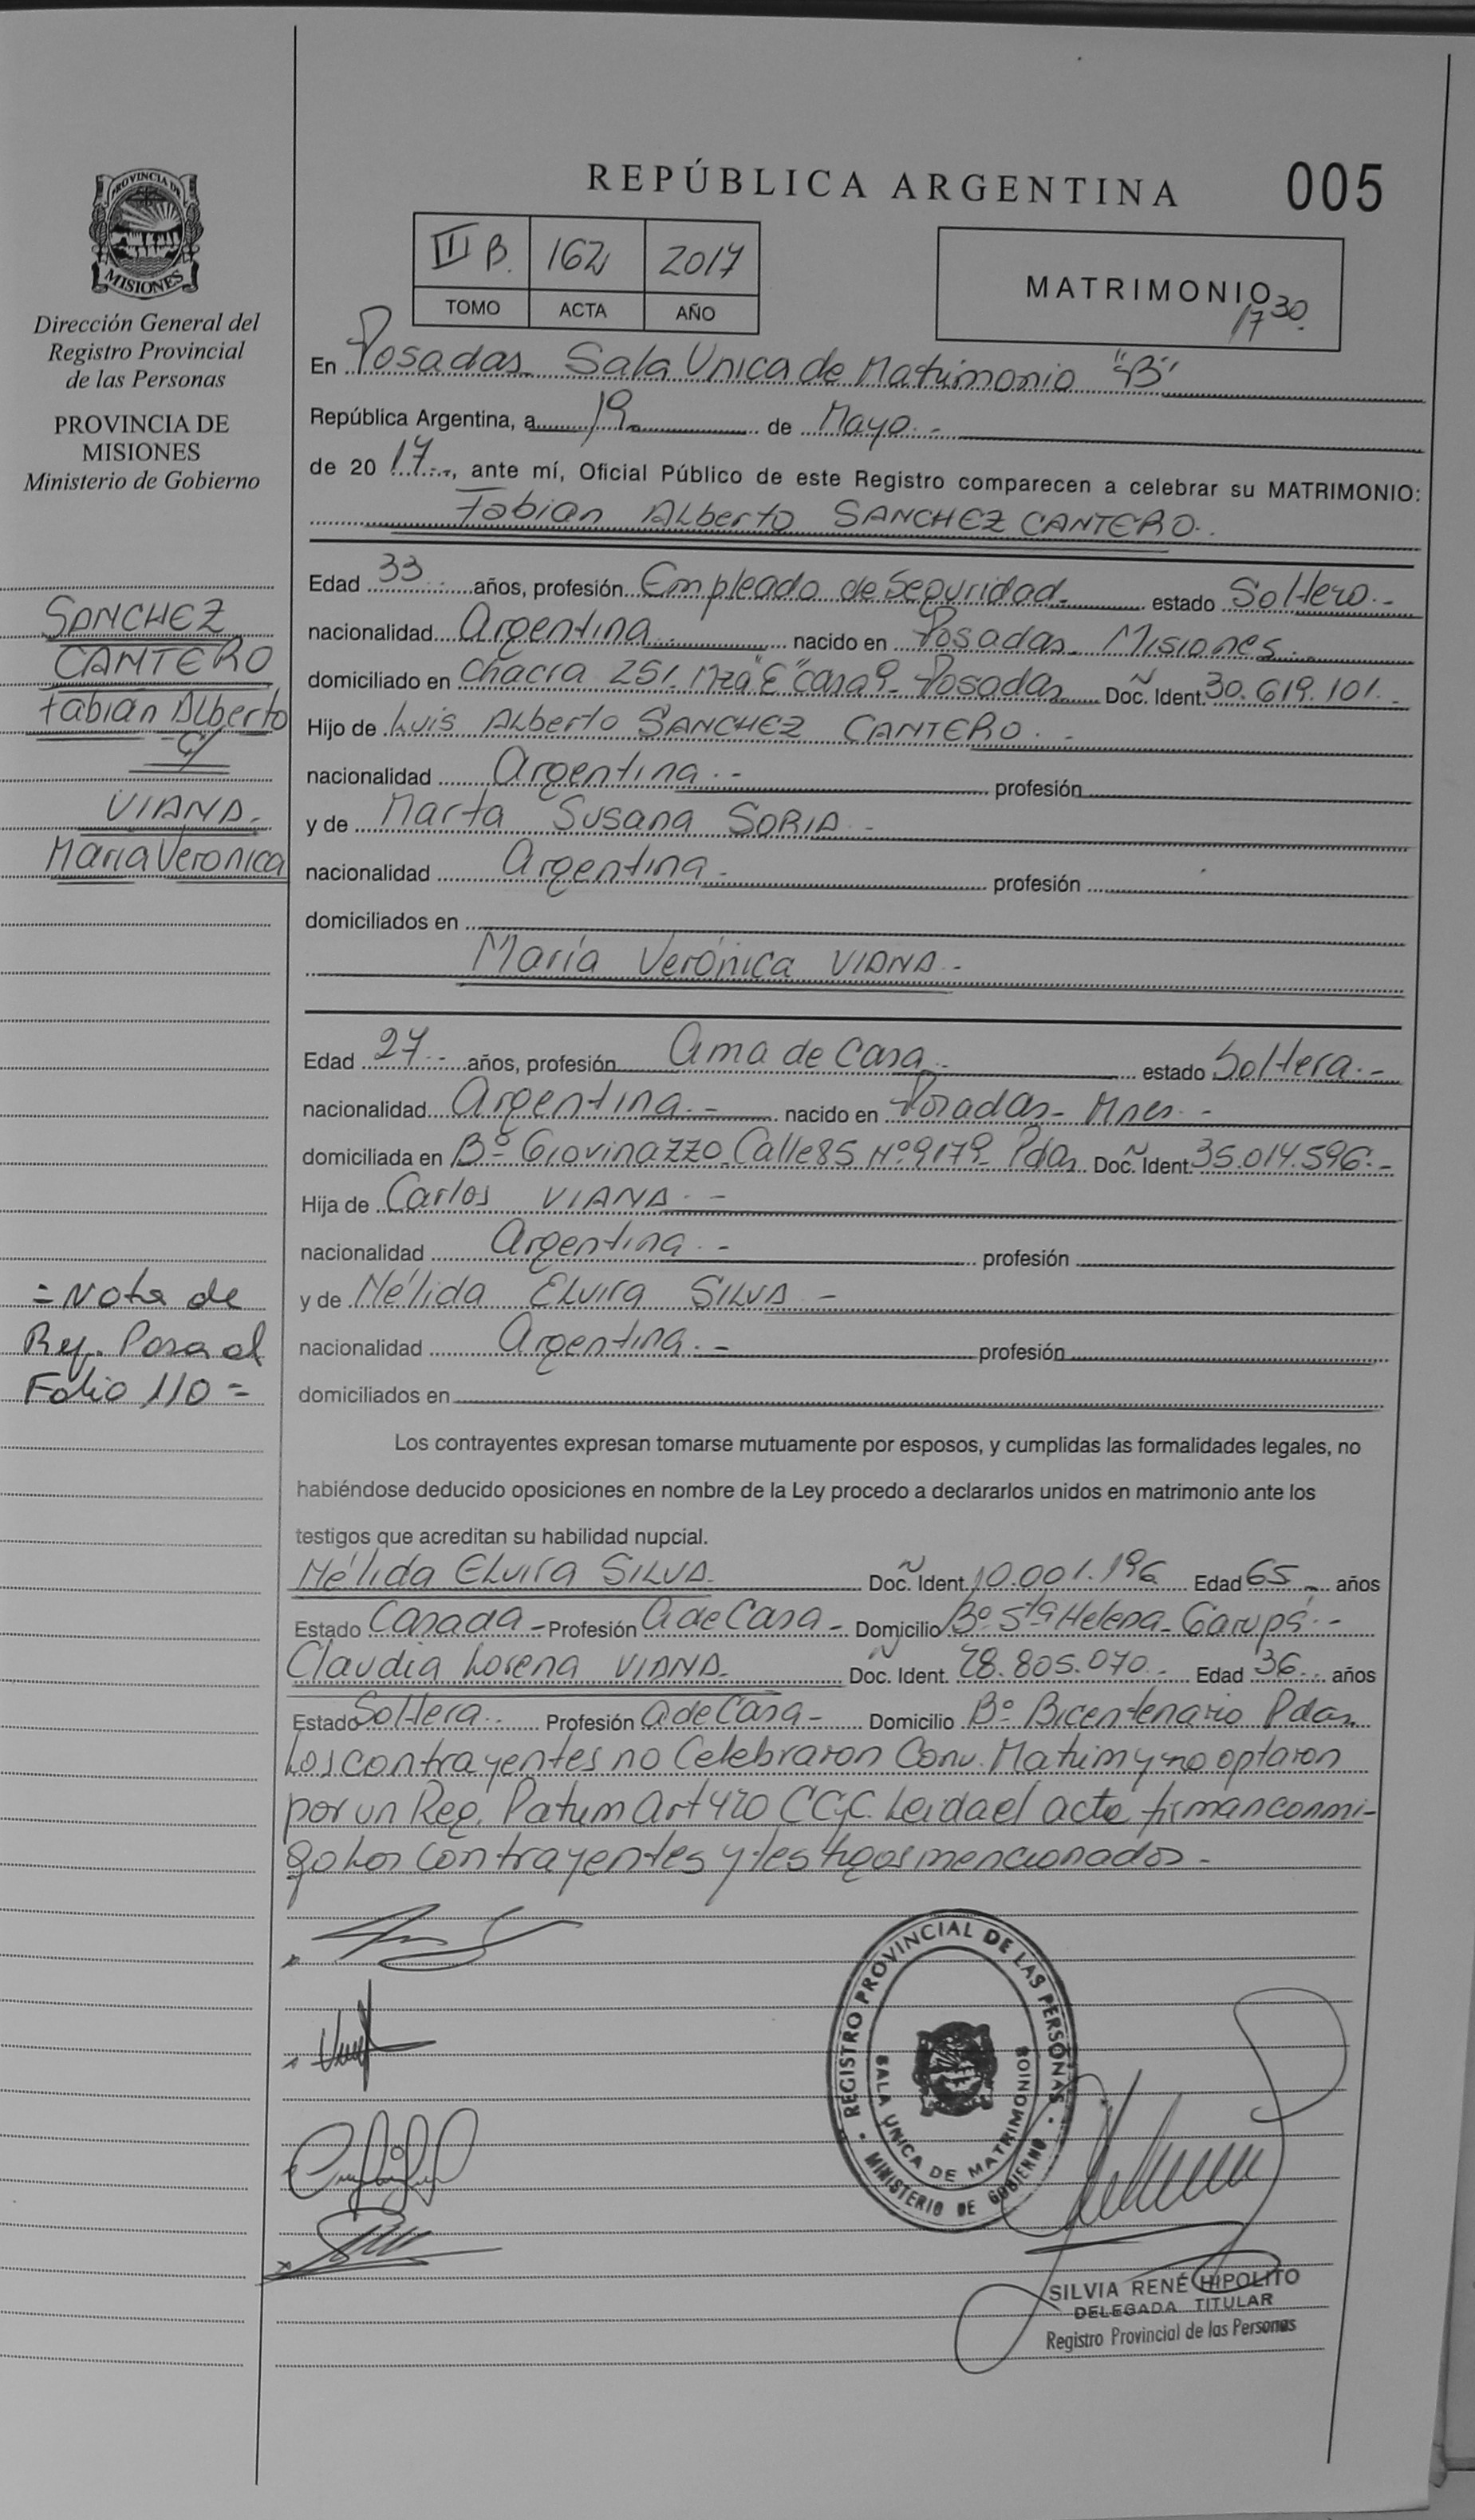 REPÚBLICA ARGENTINA 005
PROVINCIA DE
MISIONES
Dirección General del
Registro Provincial
de las Personas
PROVINCIA DE
MISIONES
Ministerio de Gobierno
III B. 162 2017
TOMO ACTA AÑO
MATRIMONIO
17 30.
En Posadas - Sala Unica de Matrimonio "B"
República Argentina, a 19 - de Mayo. -
de 20 17.-., ante mí, Oficial Público de este Registro comparecen a celebrar su MATRIMONIO:
Fabián Alberto SANCHEZ CANTERO.
Edad 33 años, profesión Empleado de Seguridad. estado Soltero.-
nacionalidad Argentina.- nacido en Posadas - Misiones.-
domiciliado en Chacra 251. Mza "E" casa 9 - Posadas Doc. Ident. 30.619.101.-
Hijo de Luis Alberto SANCHEZ CANTERO.-
nacionalidad Argentina.- profesión
y de Marta Susana SORIA -
nacionalidad Argentina - profesión
domiciliados en
María Verónica VIANA -
SANCHEZ
CANTERO
Fabián Alberto
c/
VIANA -
María Veronica
Edad 27.- años, profesión Ama de Casa.- estado Soltera.-
nacionalidad Argentina.- nacido en Posadas - Mnes.-
domiciliada en Bº Giovinazzo. Calle 85 Nº 9179 - Pdas Doc. Ident. 35.014.596.-
Hija de Carlos VIANA.-
nacionalidad Argentina.- profesión
y de Nélida Elvira SILVA -
nacionalidad Argentina.- profesión
domiciliados en
= Nota de
Ref. Pasa al
Folio 110 =
Los contrayentes expresan tomarse mutuamente por esposos, y cumplidas las formalidades legales, no
habiéndose deducido oposiciones en nombre de la Ley procedo a declararlos unidos en matrimonio ante los
testigos que acreditan su habilidad nupcial.
Nélida Elvira SILVA Doc. Ident. 10.001.196 Edad 65 - años
Estado Casada - Profesión A de Casa - Domicilio Bº Sta Helena - Garupá.-
Claudia Lorena VIANA - Doc. Ident. 28.805.070.- Edad 36 años
Estado Soltera.. Profesión A de Casa - Domicilio Bº Bicentenario Pdas.
Los contrayentes no Celebraron Conv. Matrim y no optaron
por un Reg. Patrim Art 420 CCyC. Leida el acta firman conmi-
go los contrayentes y testigos mencionados -
REGISTRO PROVINCIAL DE LAS PERSONAS
SALA UNICA DE MATRIMONIOS
MINISTERIO DE GOBIERNO
SILVIA RENÉ HIPOLITO
DELEGADA TITULAR
Registro Provincial de las Personas